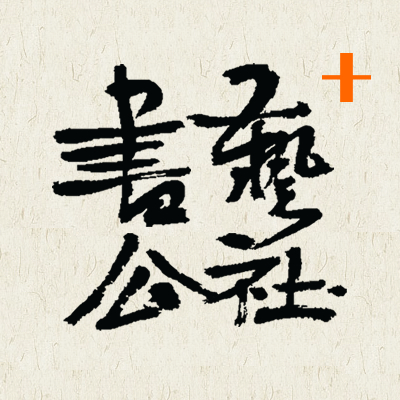 書藝
公社